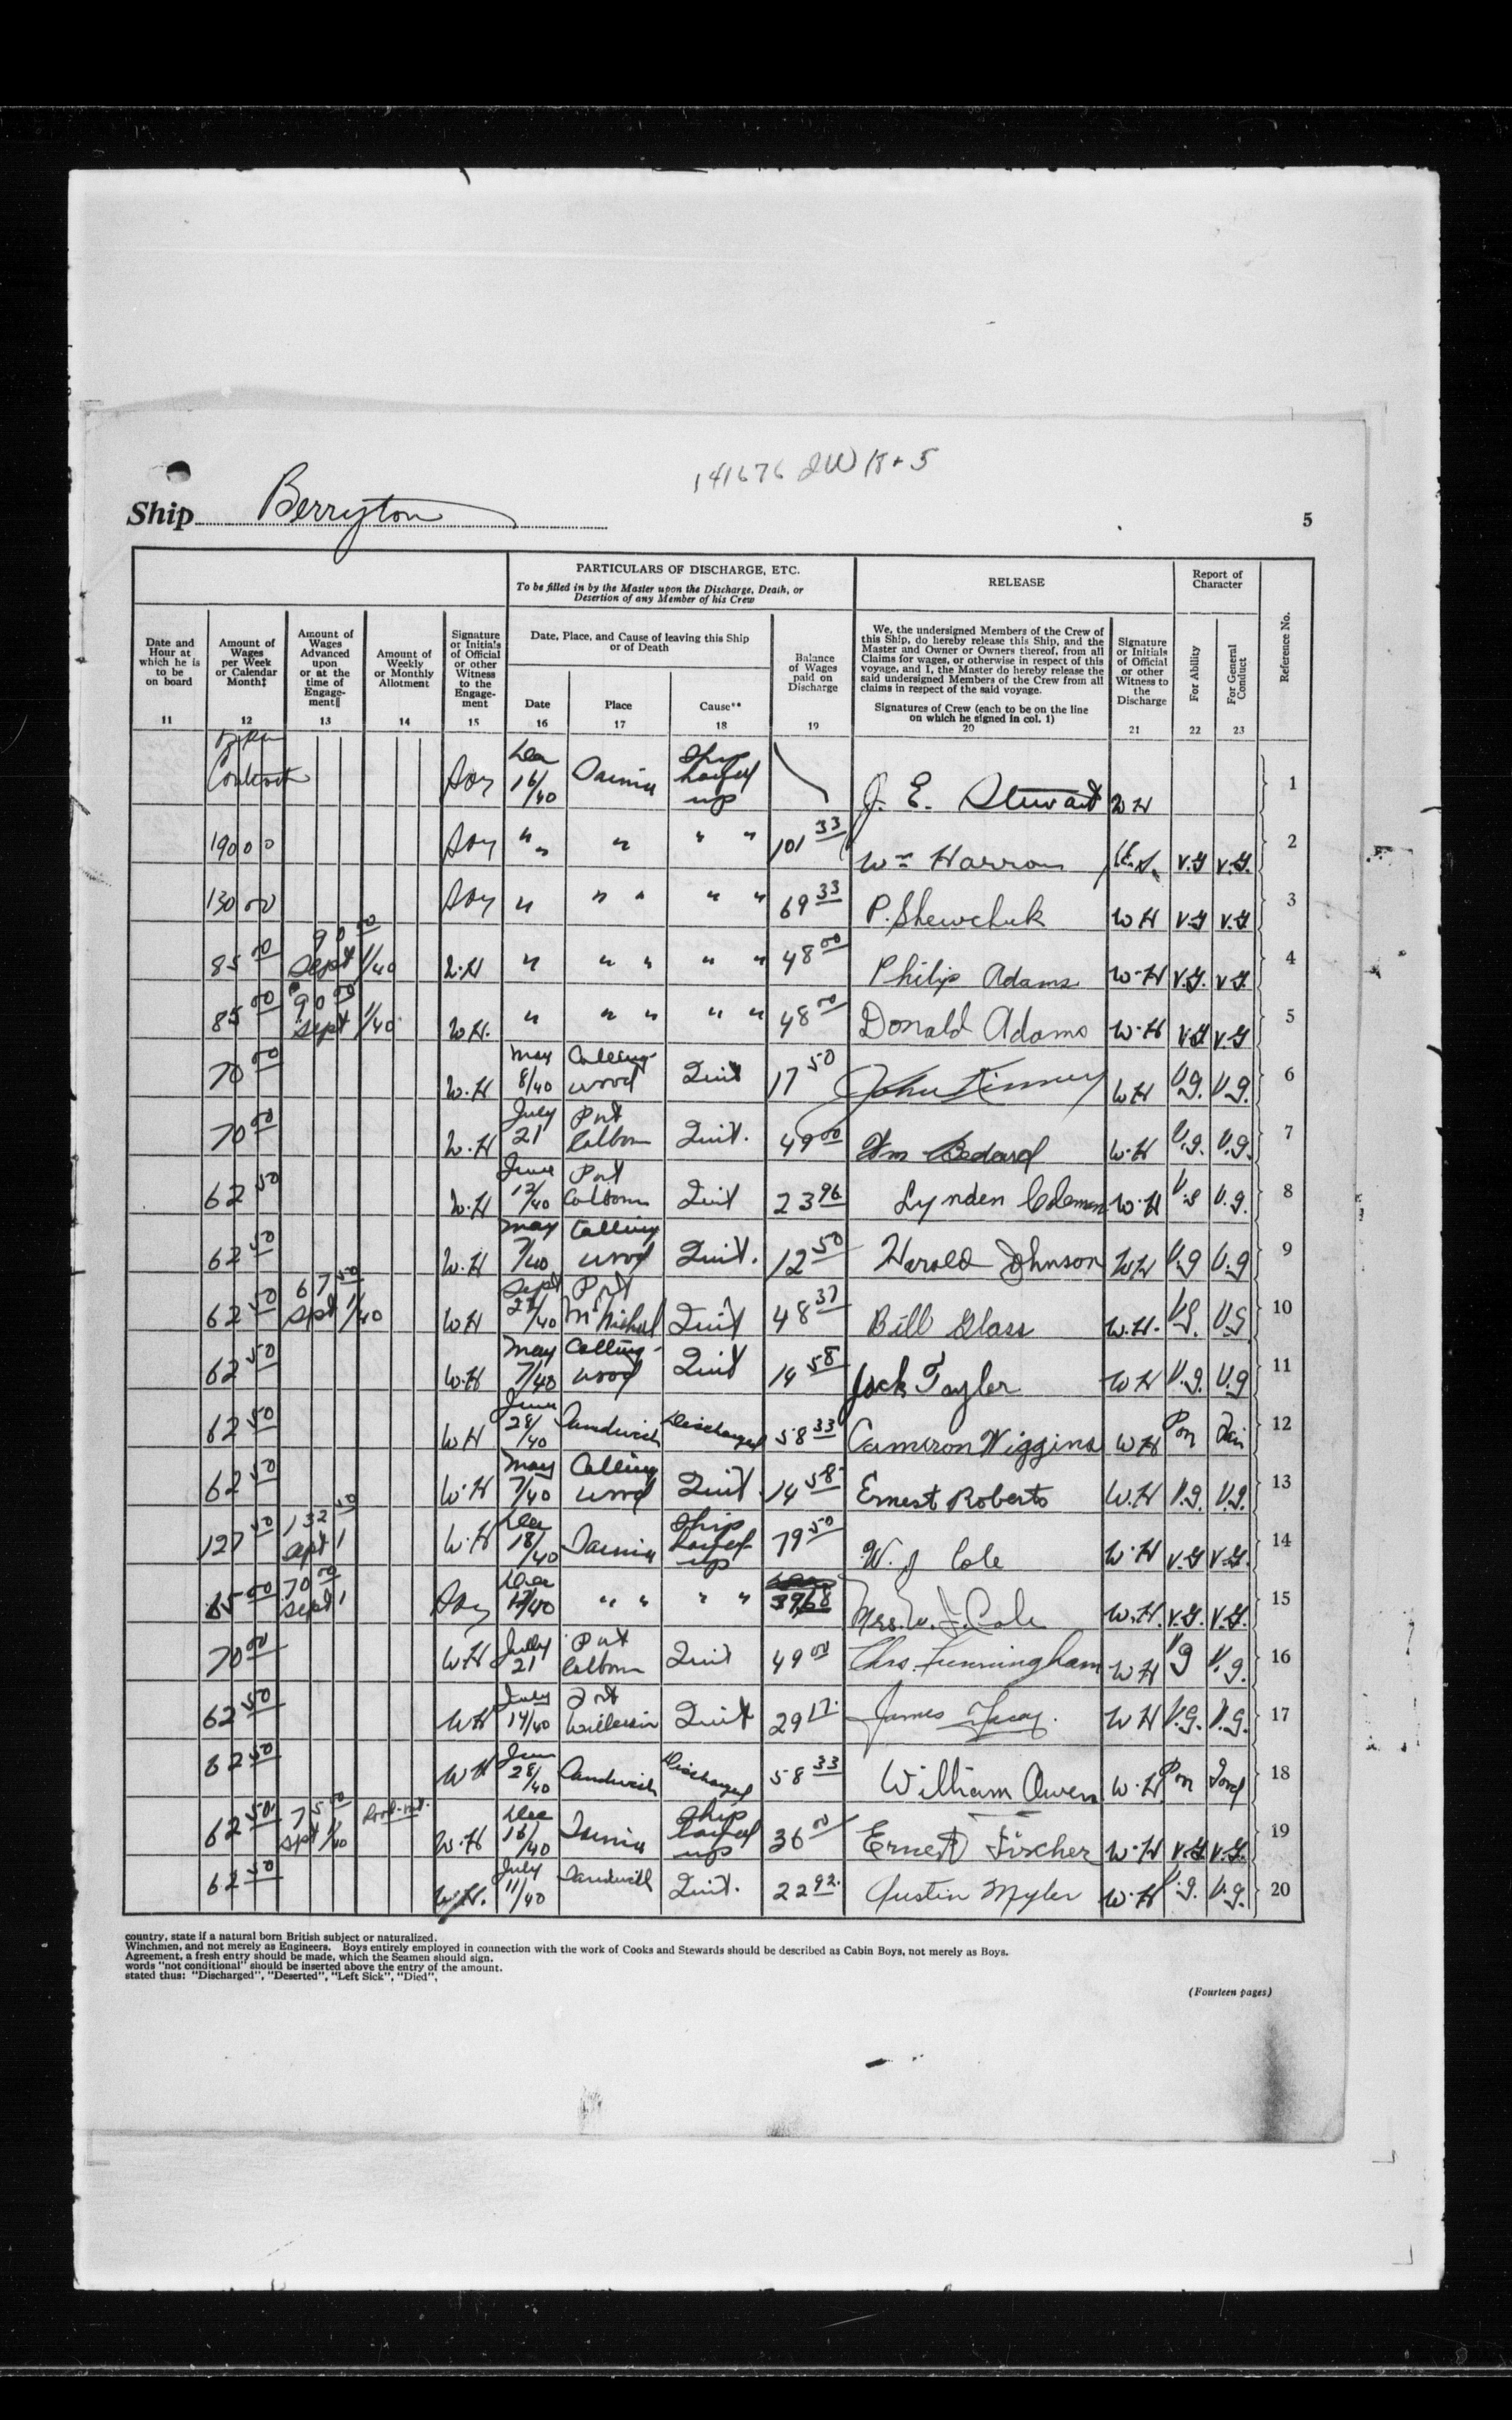 141676 2W 18+5
Ship Berryton
5
PARTICULARS OF DISCHARGE, ETC.
To be filled in by the Master upon the Discharge, Death, or
Desertion of any Member of his Crew
RELEASE
Report of
Character
Date and
Hour at
which he is
to be
on board
11
Amount of
Wages
per Week
or Calendar
Month‡
12
Amount of
Wages
Advanced
upon
or at the
time of
Engage-
ment‖
13
Amount of
Weekly
or Monthly
Allotment
14
Signature
or Initials
of Official
or other
Witness
to the
Engage-
ment
15
Date, Place, and Cause of leaving this Ship
or of Death
Date
16
Place
17
Cause**
18
Balance
of Wages
paid on
Discharge
19
We, the undersigned Members of the Crew of
this Ship, do hereby release this Ship, and the
Master and Owner or Owners thereof, from all
Claims for wages, or otherwise in respect of this
voyage, and I, the Master do hereby release the
said undersigned Members of the Crew from all
claims in respect of the said voyage.
Signatures of Crew (each to be on the line
on which he signed in col. 1)
20
Signature
or Initials
of Official
or other
Witness to
the
Discharge
21
For Ability
22
For General
Conduct
23
Reference No.
Contract Dec 16/40 Sarnia Ship layed up J. E. Stewart WH 1
190 00 " " " " " 101 33 Wm Harron V.G V.G. 2
130 00 " " " " " 69 33 P. Shewchuk WH V.G V.G 3
85 00 90 00 Sept 1/40 W.H " " " " " 48 00 Philip Adams W.H V.G. V.G. 4
85 00 90 00 Sept 1/40 W.H. " " " " " 48 00 Donald Adams W.H V.G V.G 5
70 00 W.H May 8/40 Colling-wood Quit 17 50 John Kinney WH V.g. V.g. 6
70 00 W.H July 21 Port Colborn Quit. 49 00 Wm Bedard W.H V.g. V.g. 7
62 50 W.H June 12/40 Port Colborn Quit 23 96 Lynden Coleman W.H V.g V.g. 8
62 50 W.H May 7/40 Collingwood Quit. 12 50 Harold Johnson WH V.g V.g 9
62 50 67 50 Sept 1/40 WH Sept 21/40 Port McNichol Quit 48 37 Bill Glass W.H. V.G. V.G 10
62 50 W.H May 7/40 Colling-wood Quit 14 58 Jack Tayler WH V.g. V.g 11
62 50 WH June 28/40 Sandwich Discharged 58 33 Cameron Wiggins WH Poor Fair 12
62 50 W.H May 7/40 Collingwood Quit. 14 58 Ernest Roberts W.H V.g. V.g. 13
127 50 132 50 Sept 1 W.H Dec 18/40 Sarnia Ship layed up 79 50 W. J Cole W.H V.G V.G. 14
65 00 70 00 Sept 1 Dec 17/40 " " " " 39 68 Mrs. W. J. Cole W.H. V.G. V.G. 15
70 00 WH July 21 Port Colborn Quit 49 00 Chas. Cunningham WH Vg V.g. 16
62 50 WH July 14/40 Fort William Quit 29 17 James WH V.G. V.G. 17
62 50 WH June 28/40 Sandwich Discharged 58 33 William Owen W.H Poor Good 18
62 50 75 00 Sept 1/40 W.H Dec 16/40 Sarnia Ship layed up 36 00 Ernest Fischer W.H V.G. V.G. 19
62 50 W.H. July 11/40 Sandwich Quit. 22 92 Austin Myler W.H V.g. V.g. 20
country, state if a natural born British subject or naturalized.
Winchmen, and not merely as Engineers. Boys entirely employed in connection with the work of Cooks and Stewards should be described as Cabin Boys, not merely as Boys.
Agreement, a fresh entry should be made, which the Seamen should sign.
words "not conditional" should be inserted above the entry of the amount.
stated thus: "Discharged", "Deserted", "Left Sick", "Died",
(Fourteen pages)